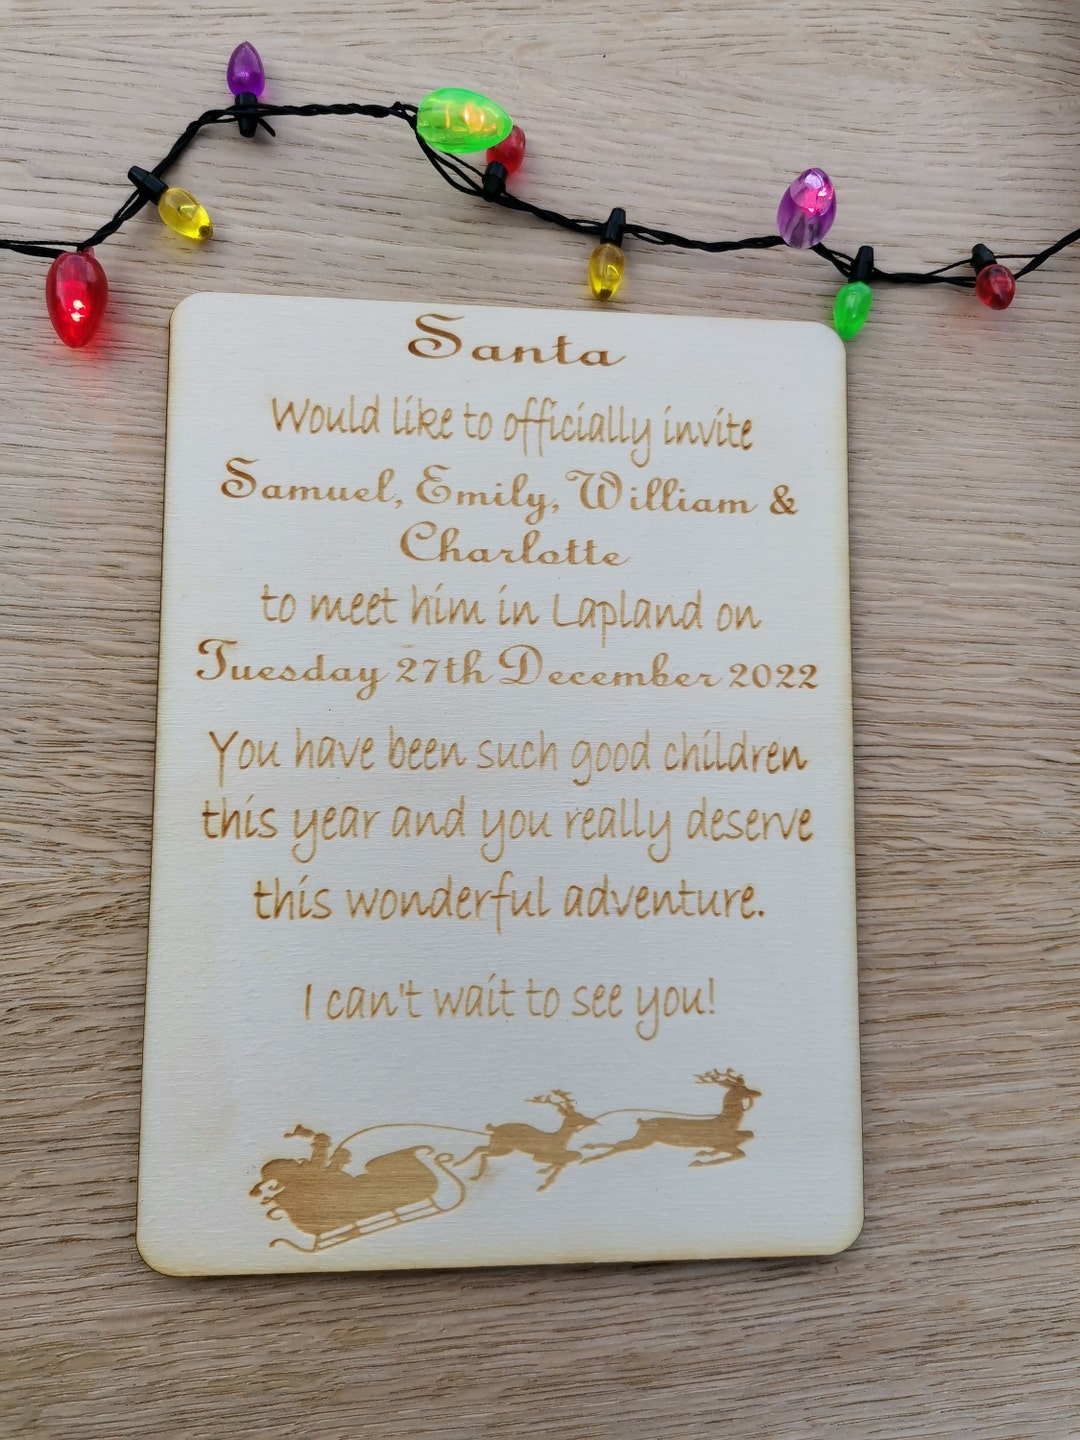 Santa
Would like to officially invite
Samuel, Emily, William &
Charlotte
to meet him in Lapland on
Tuesday 27th December 2022
You have been such good children
this year and you really deserve
this wonderful adventure.
I can't wait to see you!